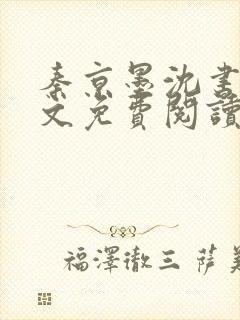 秦京墨沈書
文免費閱讀
福澤徹三 薩美